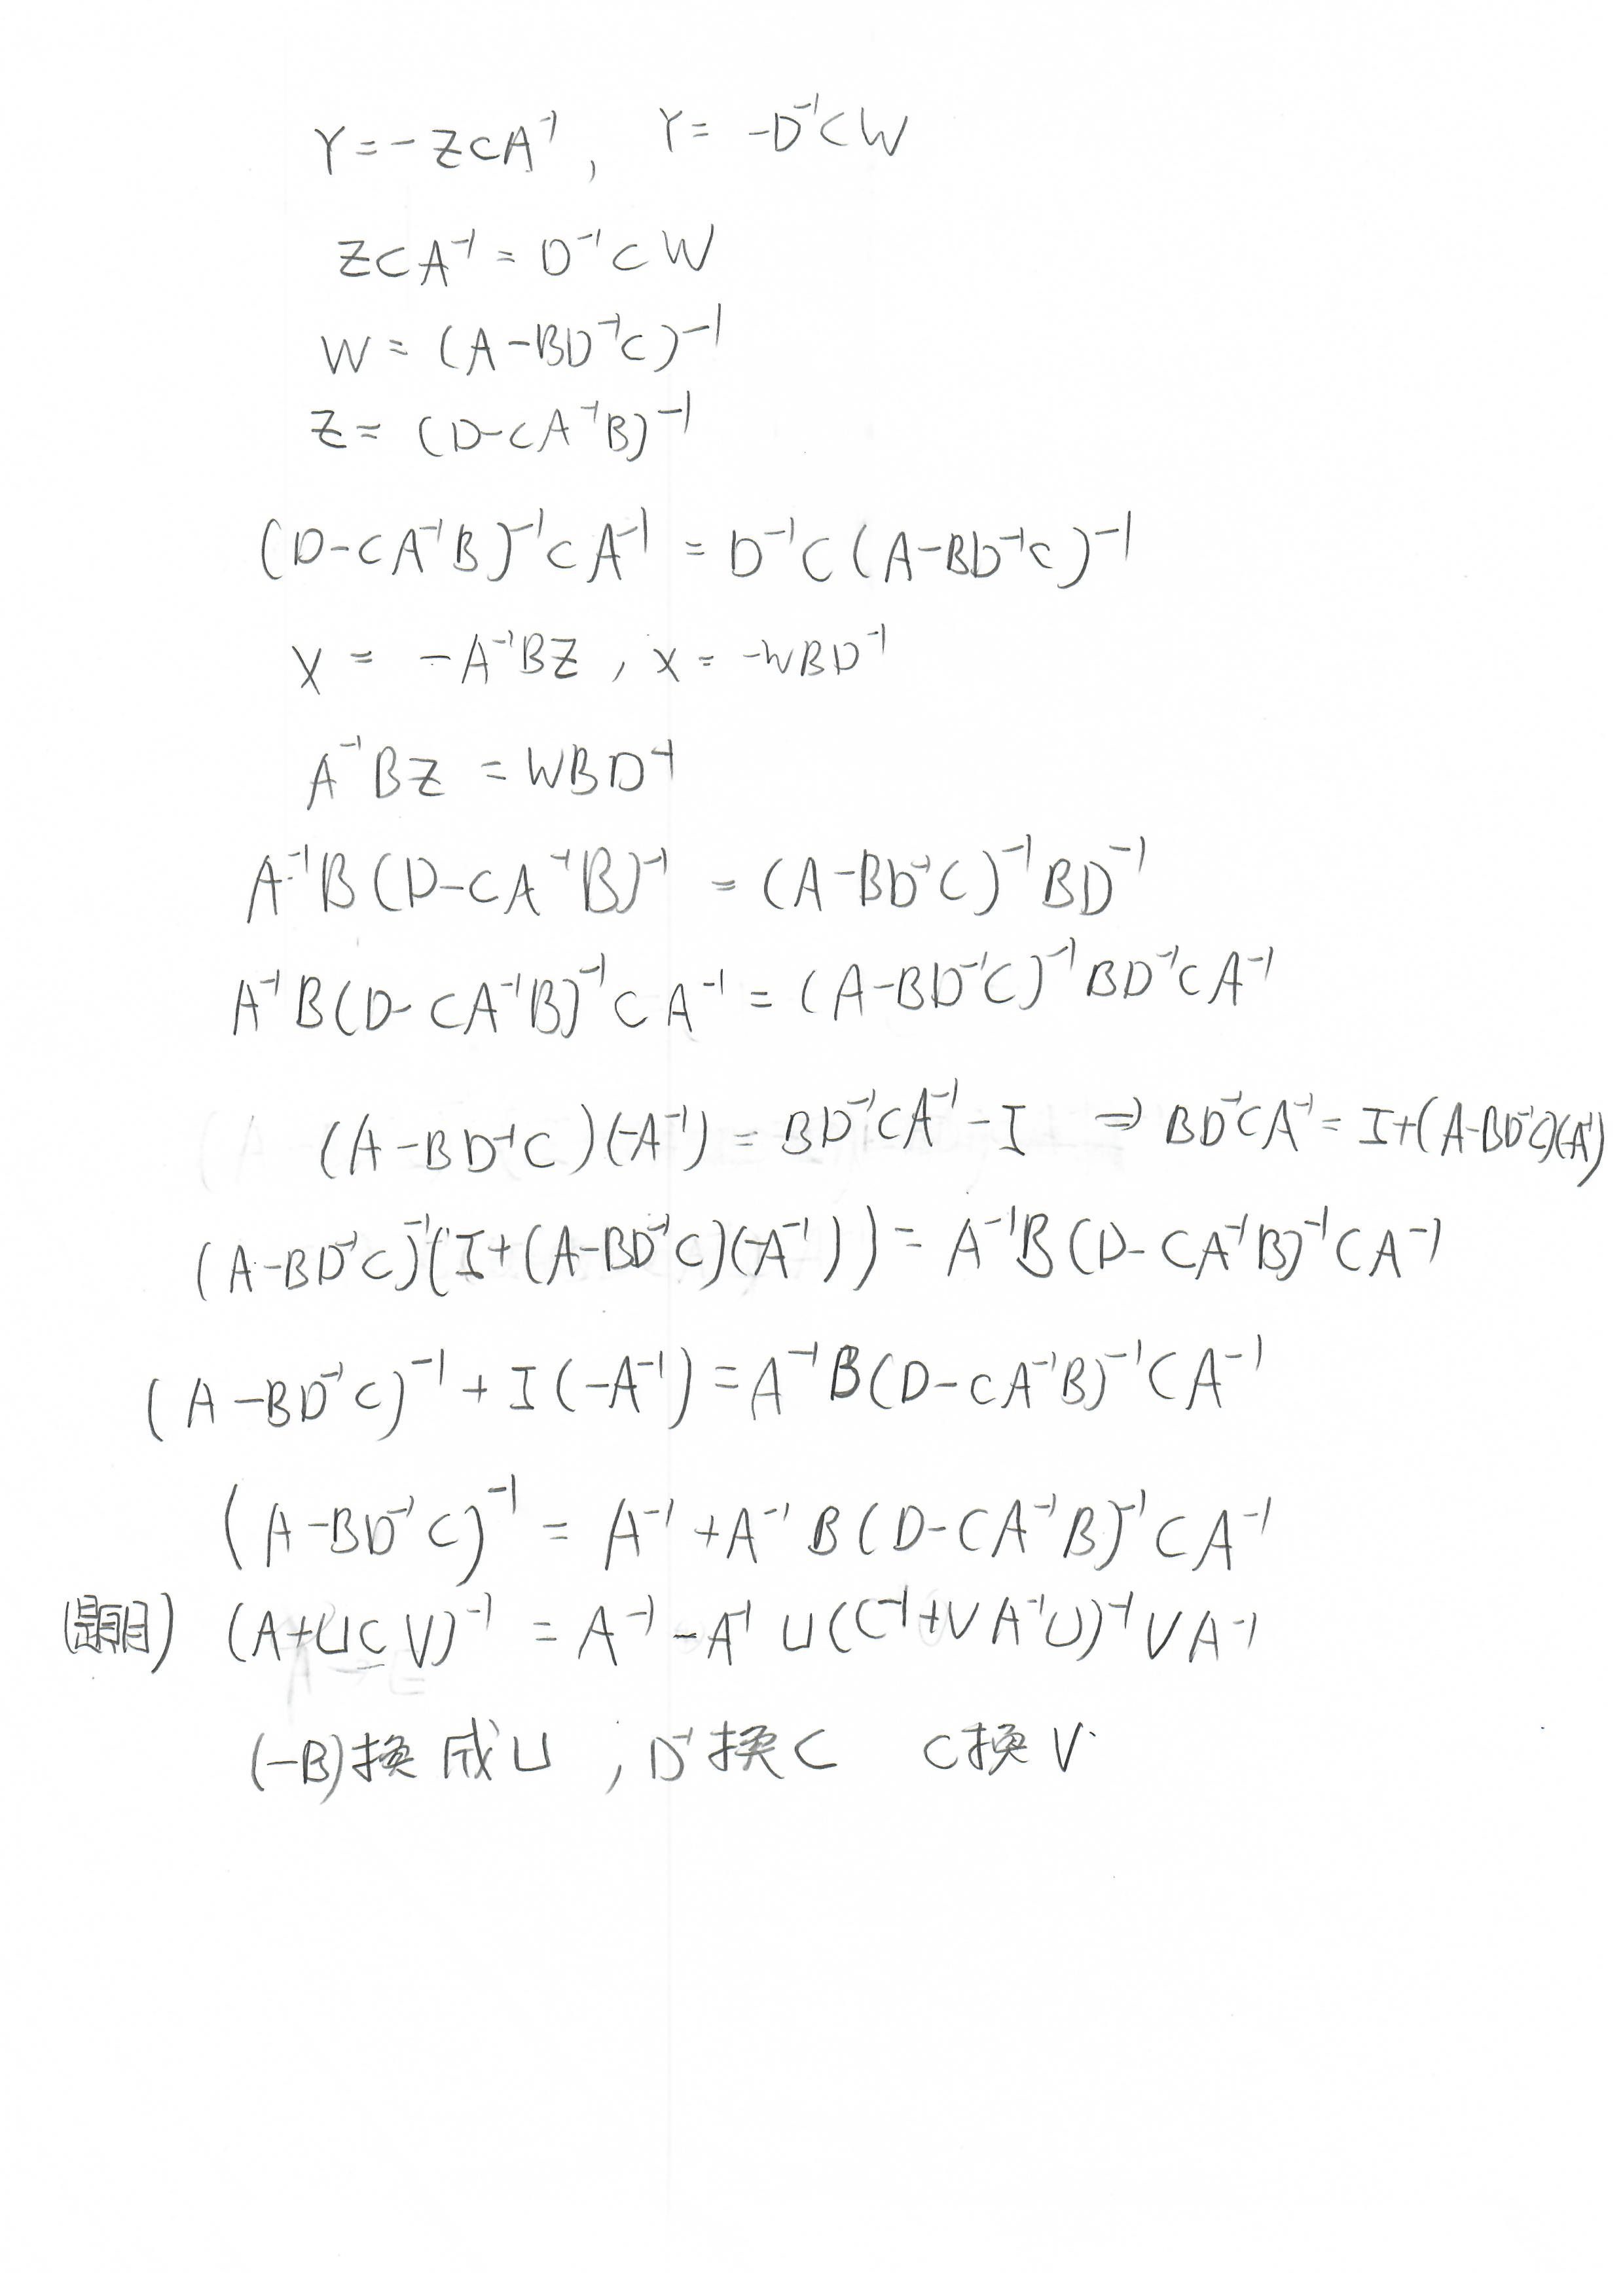 Y = -ZCA⁻¹ , Y = -D⁻¹CW
ZCA⁻¹ = D⁻¹CW
W = (A-BD⁻¹C)⁻¹
Z = (D-CA⁻¹B)⁻¹
(D-CA⁻¹B)⁻¹CA⁻¹ = D⁻¹C(A-BD⁻¹C)⁻¹
X = -A⁻¹BZ , X = -WBD⁻¹
A⁻¹BZ = WBD⁻¹
A⁻¹B(D-CA⁻¹B)⁻¹ = (A-BD⁻¹C)⁻¹BD⁻¹
A⁻¹B(D-CA⁻¹B)⁻¹CA⁻¹ = (A-BD⁻¹C)⁻¹BD⁻¹CA⁻¹
(A-BD⁻¹C)(-A⁻¹) = BD⁻¹CA⁻¹-I ⇒ BD⁻¹CA⁻¹ = I+(A-BD⁻¹C)(-A⁻¹)
(A-BD⁻¹C)⁻¹(I+(A-BD⁻¹C)(-A⁻¹)) = A⁻¹B(D-CA⁻¹B)⁻¹CA⁻¹
(A-BD⁻¹C)⁻¹+I(-A⁻¹) = A⁻¹B(D-CA⁻¹B)⁻¹CA⁻¹
(A-BD⁻¹C)⁻¹ = A⁻¹+A⁻¹B(D-CA⁻¹B)⁻¹CA⁻¹
(題目) (A+UCV)⁻¹ = A⁻¹-A⁻¹U(C⁻¹+VA⁻¹U)⁻¹VA⁻¹
(-B)換成U , D⁻¹換C C換V